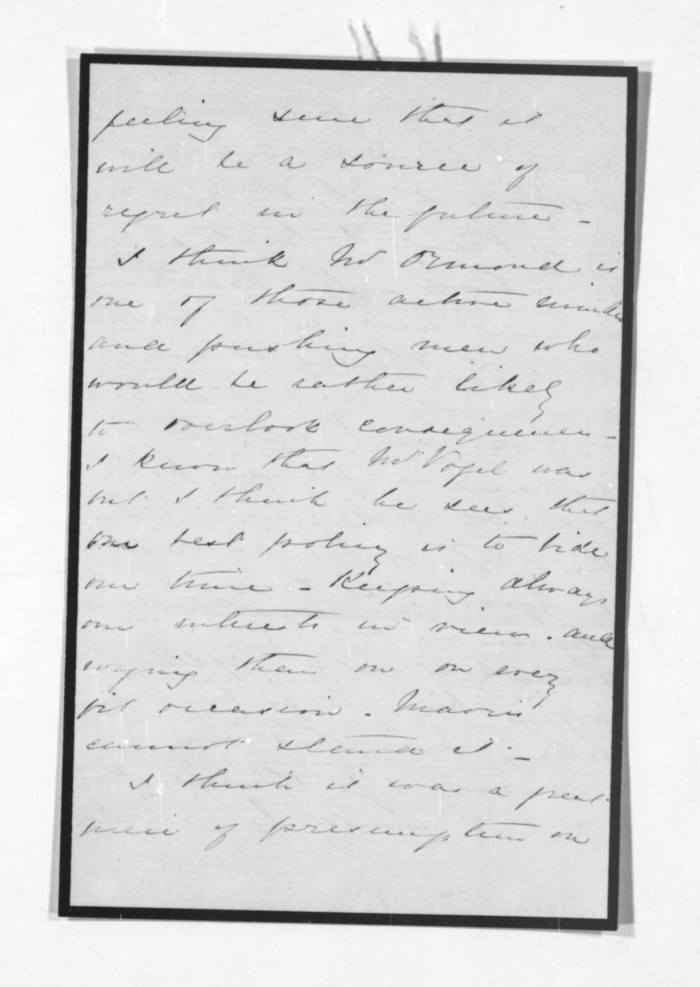 feeling sure that it
will be a source of
regret in the future -
I think Mr Ormond is
one of those active minded
and pushing men who
would be rather likely
to overlook consequences -
I know that Mr Vogel was
but I think he sees that
our best policy is to bide
our time - Keeping always
our interests in view - and
urging them on on every
fit occasion. Maoris
cannot stand it -
I think it was a great
piece of presumption on